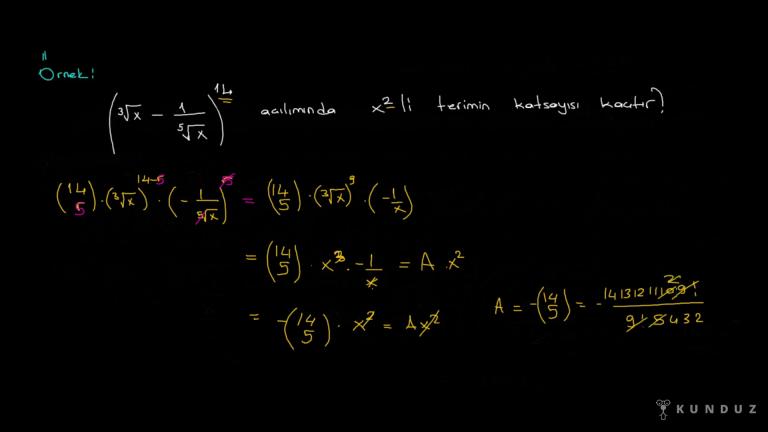 "
Örnek:
(³√x − 1/⁵√x)¹⁴ açılımında x²'li terimin katsayısı kaçtır?
(14 5) · (³√x)¹⁴⁻⁵ · (− 1/⁵√x)⁵ = (14 5) · (³√x)⁹ · (−1/x)
= (14 5) · x³ · −1/x = A · x²
= −(14 5) · x² = Ax²
A = −(14 5) = −
KUNDUZ